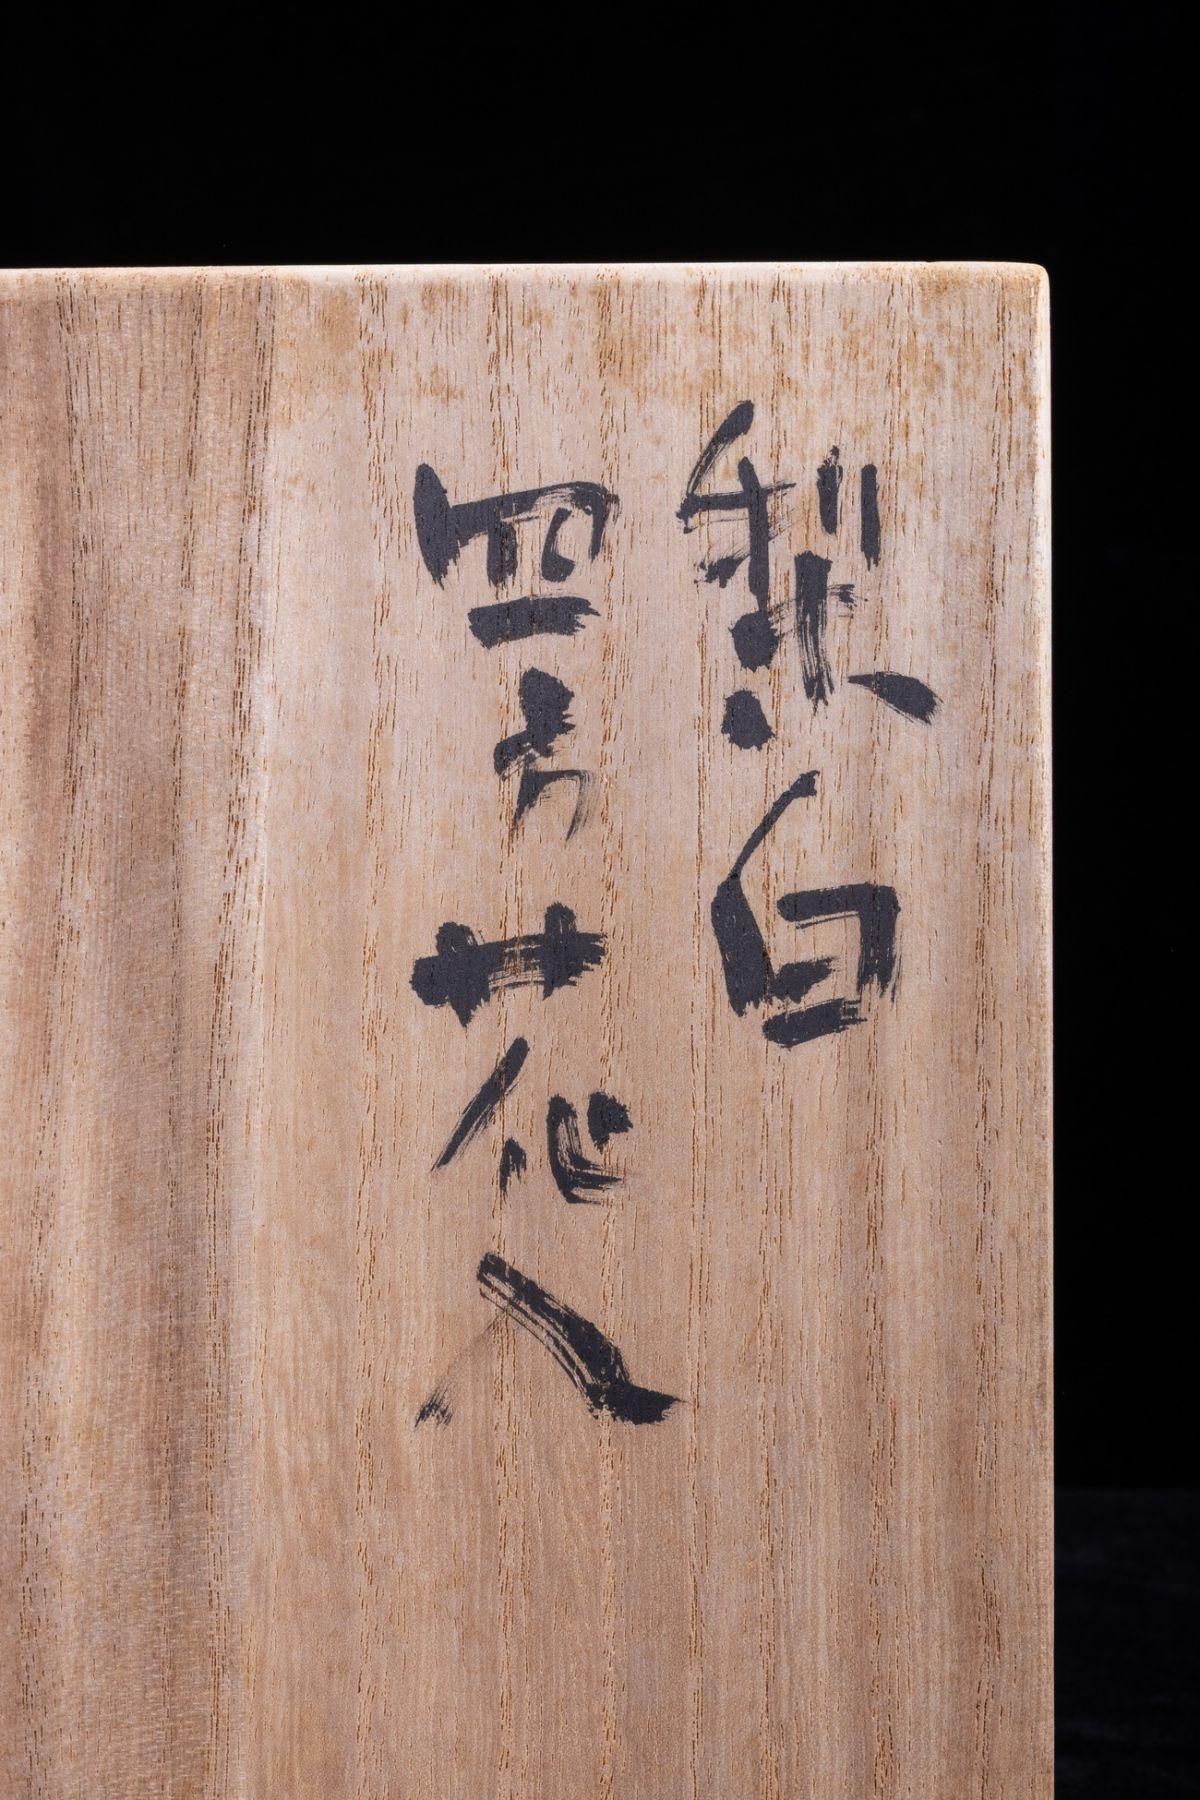 梨白
四方花入